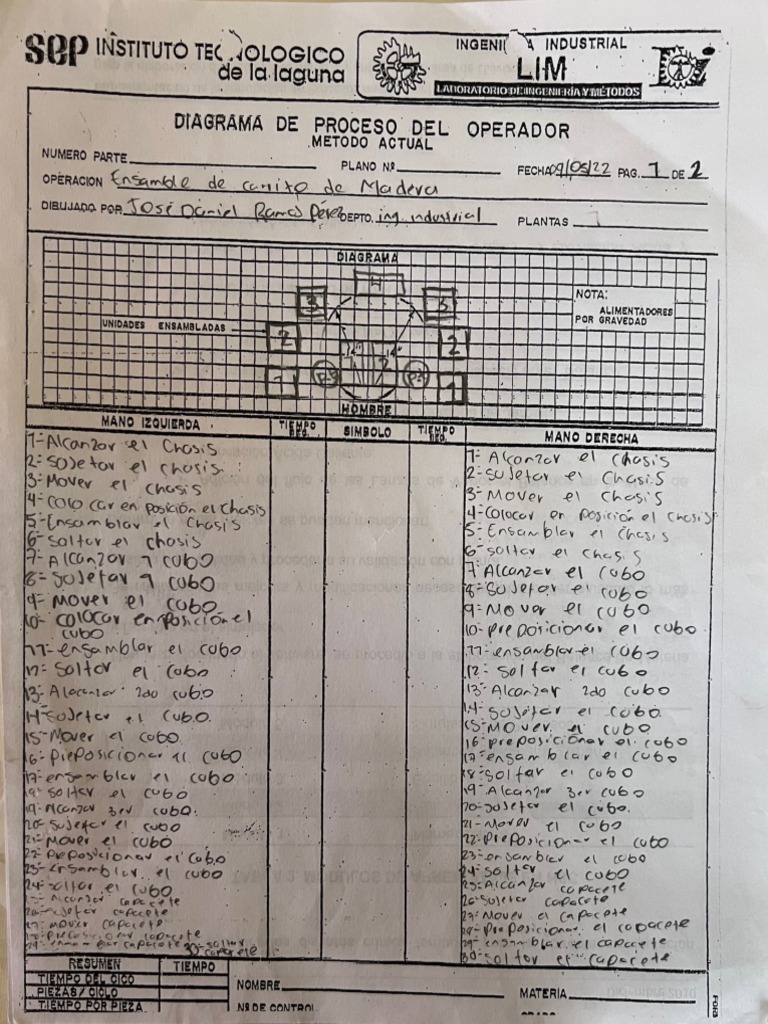 sep INSTITUTO TECNOLOGICO
de la laguna
INGENIERIA INDUSTRIAL
LIM
LABORATORIO DE INGENIERÍA Y MÉTODOS
DIAGRAMA DE PROCESO DEL OPERADOR
METODO ACTUAL
NUMERO PARTE PLANO Nº FECHA 09/05/22 PAG. 1 DE 2
OPERACION Ensamble de carrito de Madera
DIBUJADO POR José Daniel Ramos Pérez DEPTO. ing. industrial PLANTAS 1
DIAGRAMA
4
3 3
NOTA:
ALIMENTADORES
POR GRAVEDAD
UNIDADES ENSAMBLADAS
2 2
14" 14"
1 1
HOMBRE
MANO IZQUIERDA TIEMPO SEG. SIMBOLO TIEMPO SEG. MANO DERECHA
1- Alcanzar el Chasis
2- Sujetar el chasis
3- Mover el chasis
4- Colocar en posición el chasis
5- Ensamblar el Chasis
6- Soltar el chasis
7- Alcanzar 1 cubo
8- Sujetar 1 cubo
9- Mover el cubo
10- colocar en posición el
cubo
11- ensamblar el cubo
12- Soltar el cubo
13- Alacanzar 2do cubo
14- Sujetar el cubo
15- Mover el cubo
16- Preposicionar el cubo
17- ensamblar el cubo
18- Soltar el cubo
19- Alcanzar 3er cubo
20- Sujetar el cubo
21- Mover el cubo
22- Preposicionar el cubo
23- Ensamblar el cubo
24- Soltar el cubo
25- Alcanzar capacete
26- Sujetar capacete
27- Mover capacete
28- Preposicionar capacete
29- ensamblar capacete 30- Soltar
capacete
1- Alcanzar el chasis
2- Sujetar el Chasis
3- Mover el chasis
4- Colocar en posición el chasis
5- Ensamblar el chasis
6- Soltar el chasis
7- Alcanzar el cubo
8- Sujetar el cubo
9- Mover el cubo
10- Preposicionar el cubo
11- ensamblar el cubo
12- Soltar el cubo
13- Alcanzar 2do cubo
14- Sujetar el cubo
15- Mover el cubo
16- Preposicionar el cubo
17- ensamblar el cubo
18- Soltar el cubo
19- Alcanzar 3er cubo
20- Sujetar el cubo
21- Mover el cubo
22- Preposicionar el cubo
23- ensamblar el cubo
24- Soltar el cubo
25- Alcanzar capacete
26- Sujetar capacete
27- Mover el capacete
28- Preposicionar el capacete
29- ensamblar el capacete
30- Soltar el capacete
RESUMEN TIEMPO
TIEMPO DEL CICO
PIEZAS / CICLO
TIEMPO POR PIEZA
NOMBRE MATERIA
Nº DE CONTROL